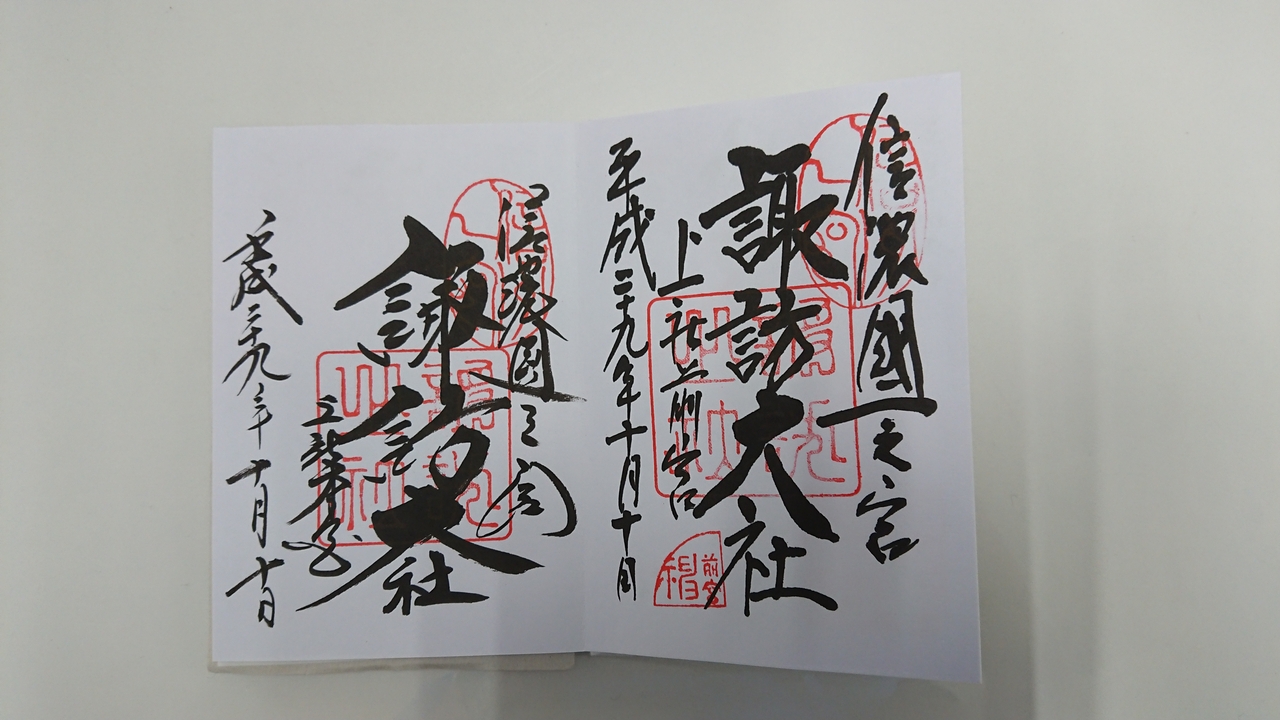 信濃國一之宮
諏訪大社
上社前宮
前宮
平成二十九年十月十日
信濃國一之宮
諏訪大社
上社本宮
平成二十九年十月十日